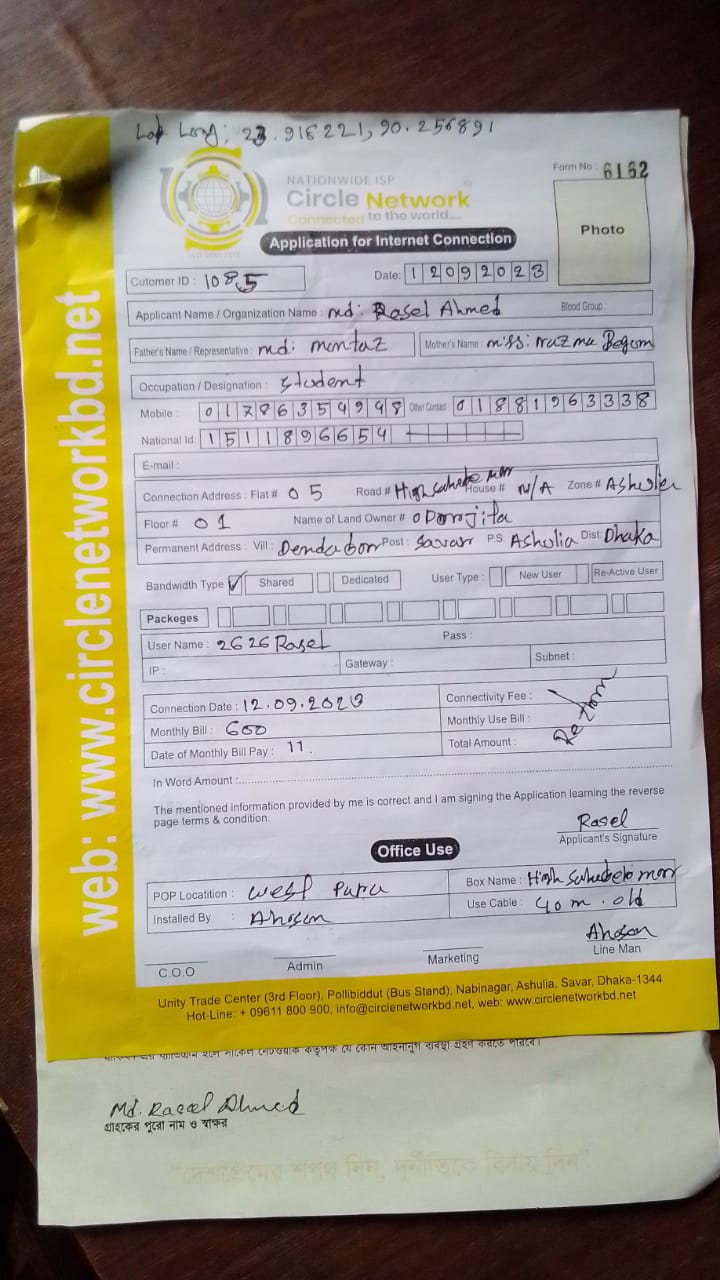 Lat Long: 23.916221, 90.256891
NATIONWIDE ISP
Circle Network
Connected to the world....
Form No : 6162
Photo
Application for Internet Connection
Cutomer ID : 1085
Date: 12092023
Applicant Name / Organization Name : md: Rasel Ahmed
Blood Group :
Father's Name / Representative : md: montaz
Mother's Name : miss: nazma Begum
Occupation / Designation : student
Mobile : 01786354948
Other Contact 01881963338
National Id: 1511896654
E-mail :
Connection Address : Flat # 05 Road # House # N/A Zone # Ashulia
Floor # 01 Name of Land Owner # oporojita
Permanent Address : Vill : Dendabor Post : Savar P.S. Ashulia Dist: Dhaka
Bandwidth Type Shared Dedicated User Type : New User Re-Active User
Packeges
User Name : 2626Rasel Pass :
IP : Gateway : Subnet :
Connection Date : 12.09.2023
Connectivity Fee :
Monthly Bill : 600
Monthly Use Bill :
Date of Monthly Bill Pay : 11.
Total Amount :
In Word Amount :
The mentioned information provided by me is correct and I am signing the Application learning the reverse
page terms & condition.
Rasel
Applicant's Signature
Office Use
POP Locatition : west Para
Box Name :
Installed By : Ahosan
Use Cable : 40 m. old
Ahosan
C.O.O Admin Marketing Line Man
Unity Trade Center (3rd Floor), Pollibiddut (Bus Stand), Nabinagar, Ashulia, Savar, Dhaka-1344
Hot-Line: + 09611 800 900, info@circlenetworkbd.net, web: www.circlenetworkbd.net
web: www.circlenetworkbd.net
Md. Rasel Ahmed
গ্রাহকের পুরো নাম ও স্বাক্ষর
"দেশপ্রেমের শপথ নিন, দুর্নীতিকে বিদায় দিন"